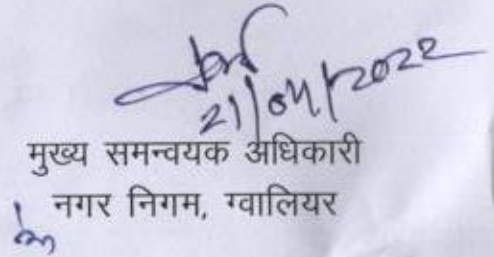 21/04/2022
मुख्य समन्वयक अधिकारी
नगर निगम, ग्वालियर